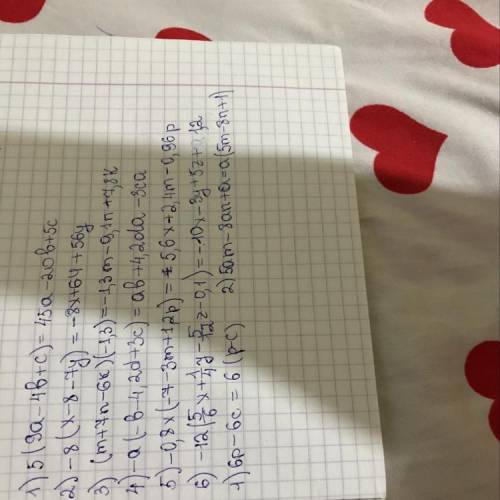 1) 5(9a-4b+c)=45a-20b+5c
2) -8(x-8-7y)=-8x+64+56y
3) (m+7n-6k)(-1,3)=-1,3m-9,1n+7,8k
4) -a(-b-4,2d+3c)=ab+4,2da-3ca
5) -0,8x(-7-3m+1,2p)=5,6x+2,4m-0,96p
6) -12(5/6x+1/4y-5/12z-0,1)=-10x-3y+5z+1,2
1) 6p-6c=6(p-c) 2) 5am-8an+a=a(5m-8n+1)